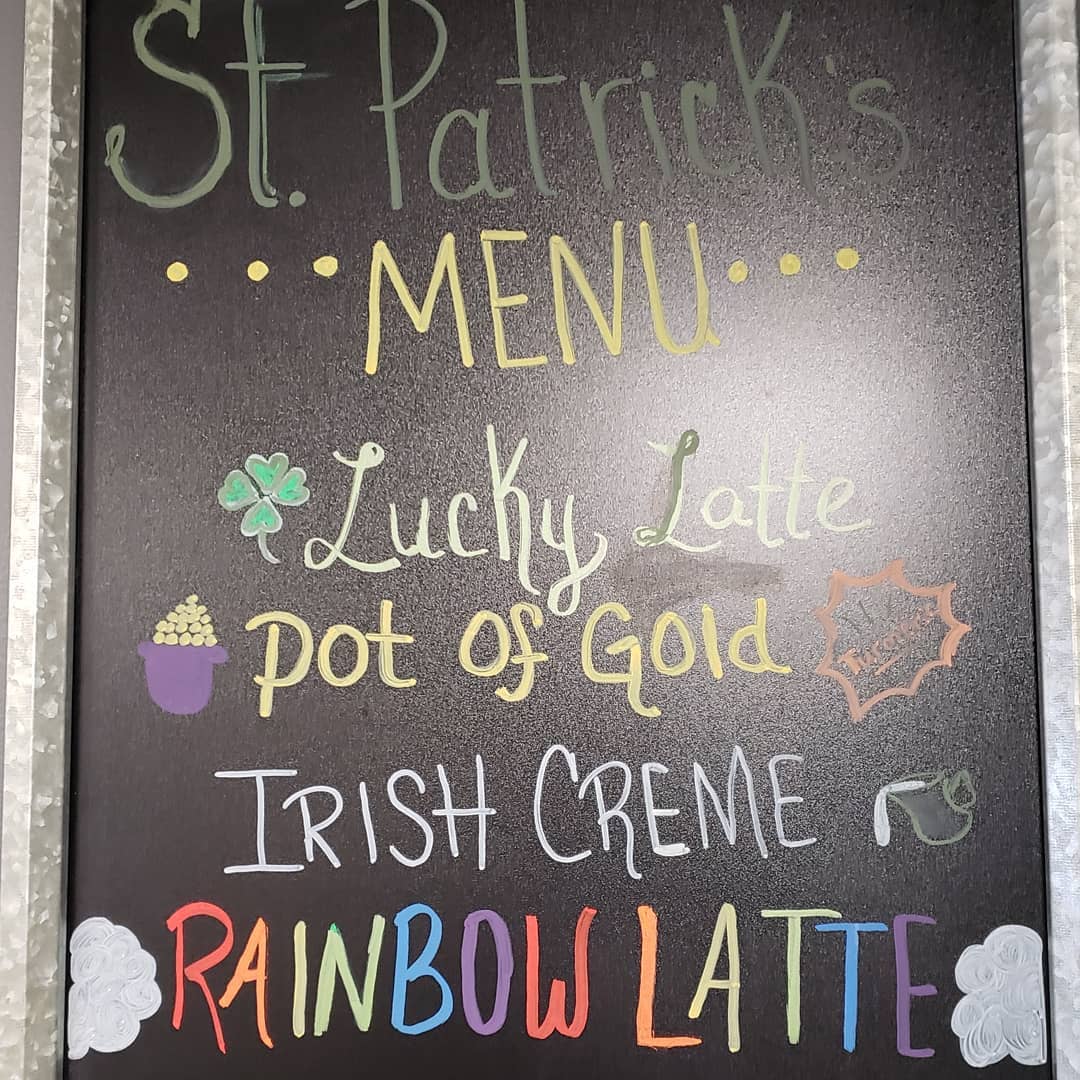 St. Patrick's
...MENU...
Lucky Latte
Pot of Gold
IRISH CREME
RAINBOW LATTE